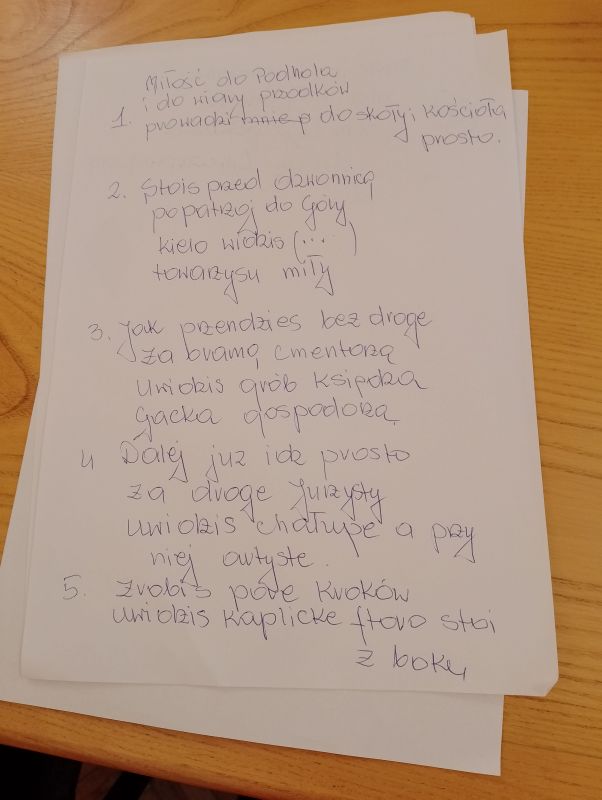 Miłość do Podhola
i do wiary przodków
1. prowadzi mnie p do skoły i kościoła
prosto.
2. Stois przed dzwonnicą
popatrzoj do Góry
kielo widzis (... )
towarzysu miły
3. Jak przendzies bez droge
za bramą cmentorza
uwidzis grób księdza
Gacka gospodorza
4 Dalej juz idz prosto
za droge Jurzysty
uwidzis chałupe a przy
niej artyste.
5. zrobis pore kroków
uwidzis kaplicke ftoro stoi
z boku